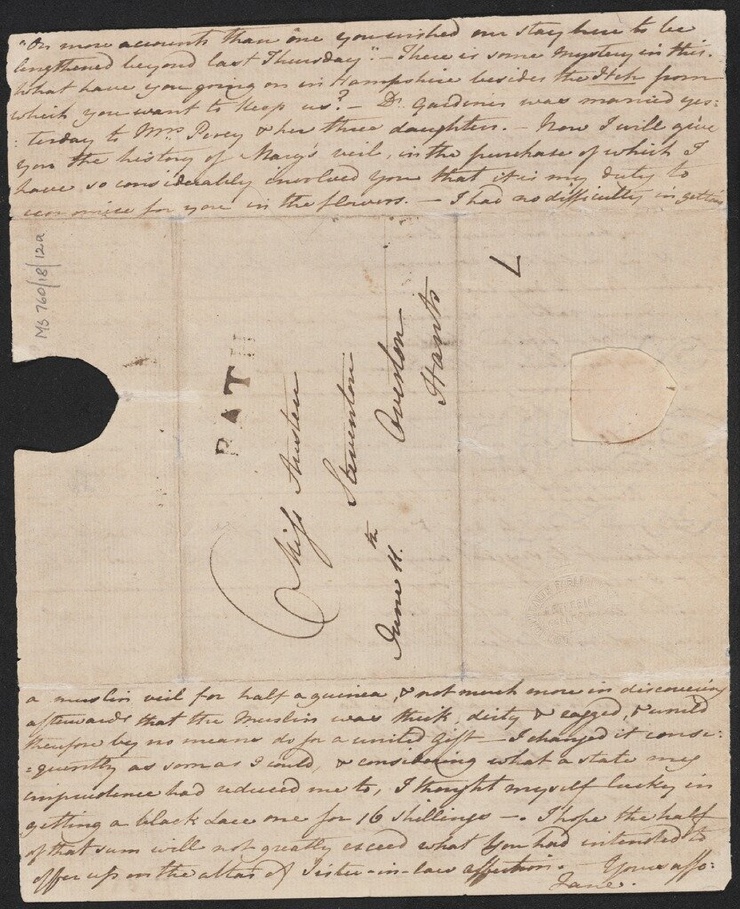 "On more accounts than one you wished our stay here to be
lengthened beyond last Thursday."— There is some mystery in this.
What have you going on in Hampshire besides the Itch from
which you want to keep us? — Dr. Gardiner was married yes:
:terday to Mrs Percy & her three daughters. — Now I will give
you the history of Mary's veil, in the purchase of which I
have so considerably involved you that it is my duty to
economise for you in the flowers. — I had no difficulty in getting
MS 760/18/12a
BATH
Miss Austen
Steventon
Overton
Hants
June 11.th
7
a muslin veil for half a guinea, & not much more in discovering
afterwards that the Muslin was thick, dirty & ragged, & would
therefore by no means do for a united Gift — I changed it conse:
:quently as soon as I could, & considering what a state my
imprudence had reduced me to, I thought myself lucky in
getting a black Lace one for 16 shillings —. I hope the half
of that sum will not greatly exceed what You had intended to
offer up on the altar of Sister-in-law affection. — Yours affec:
Jane.